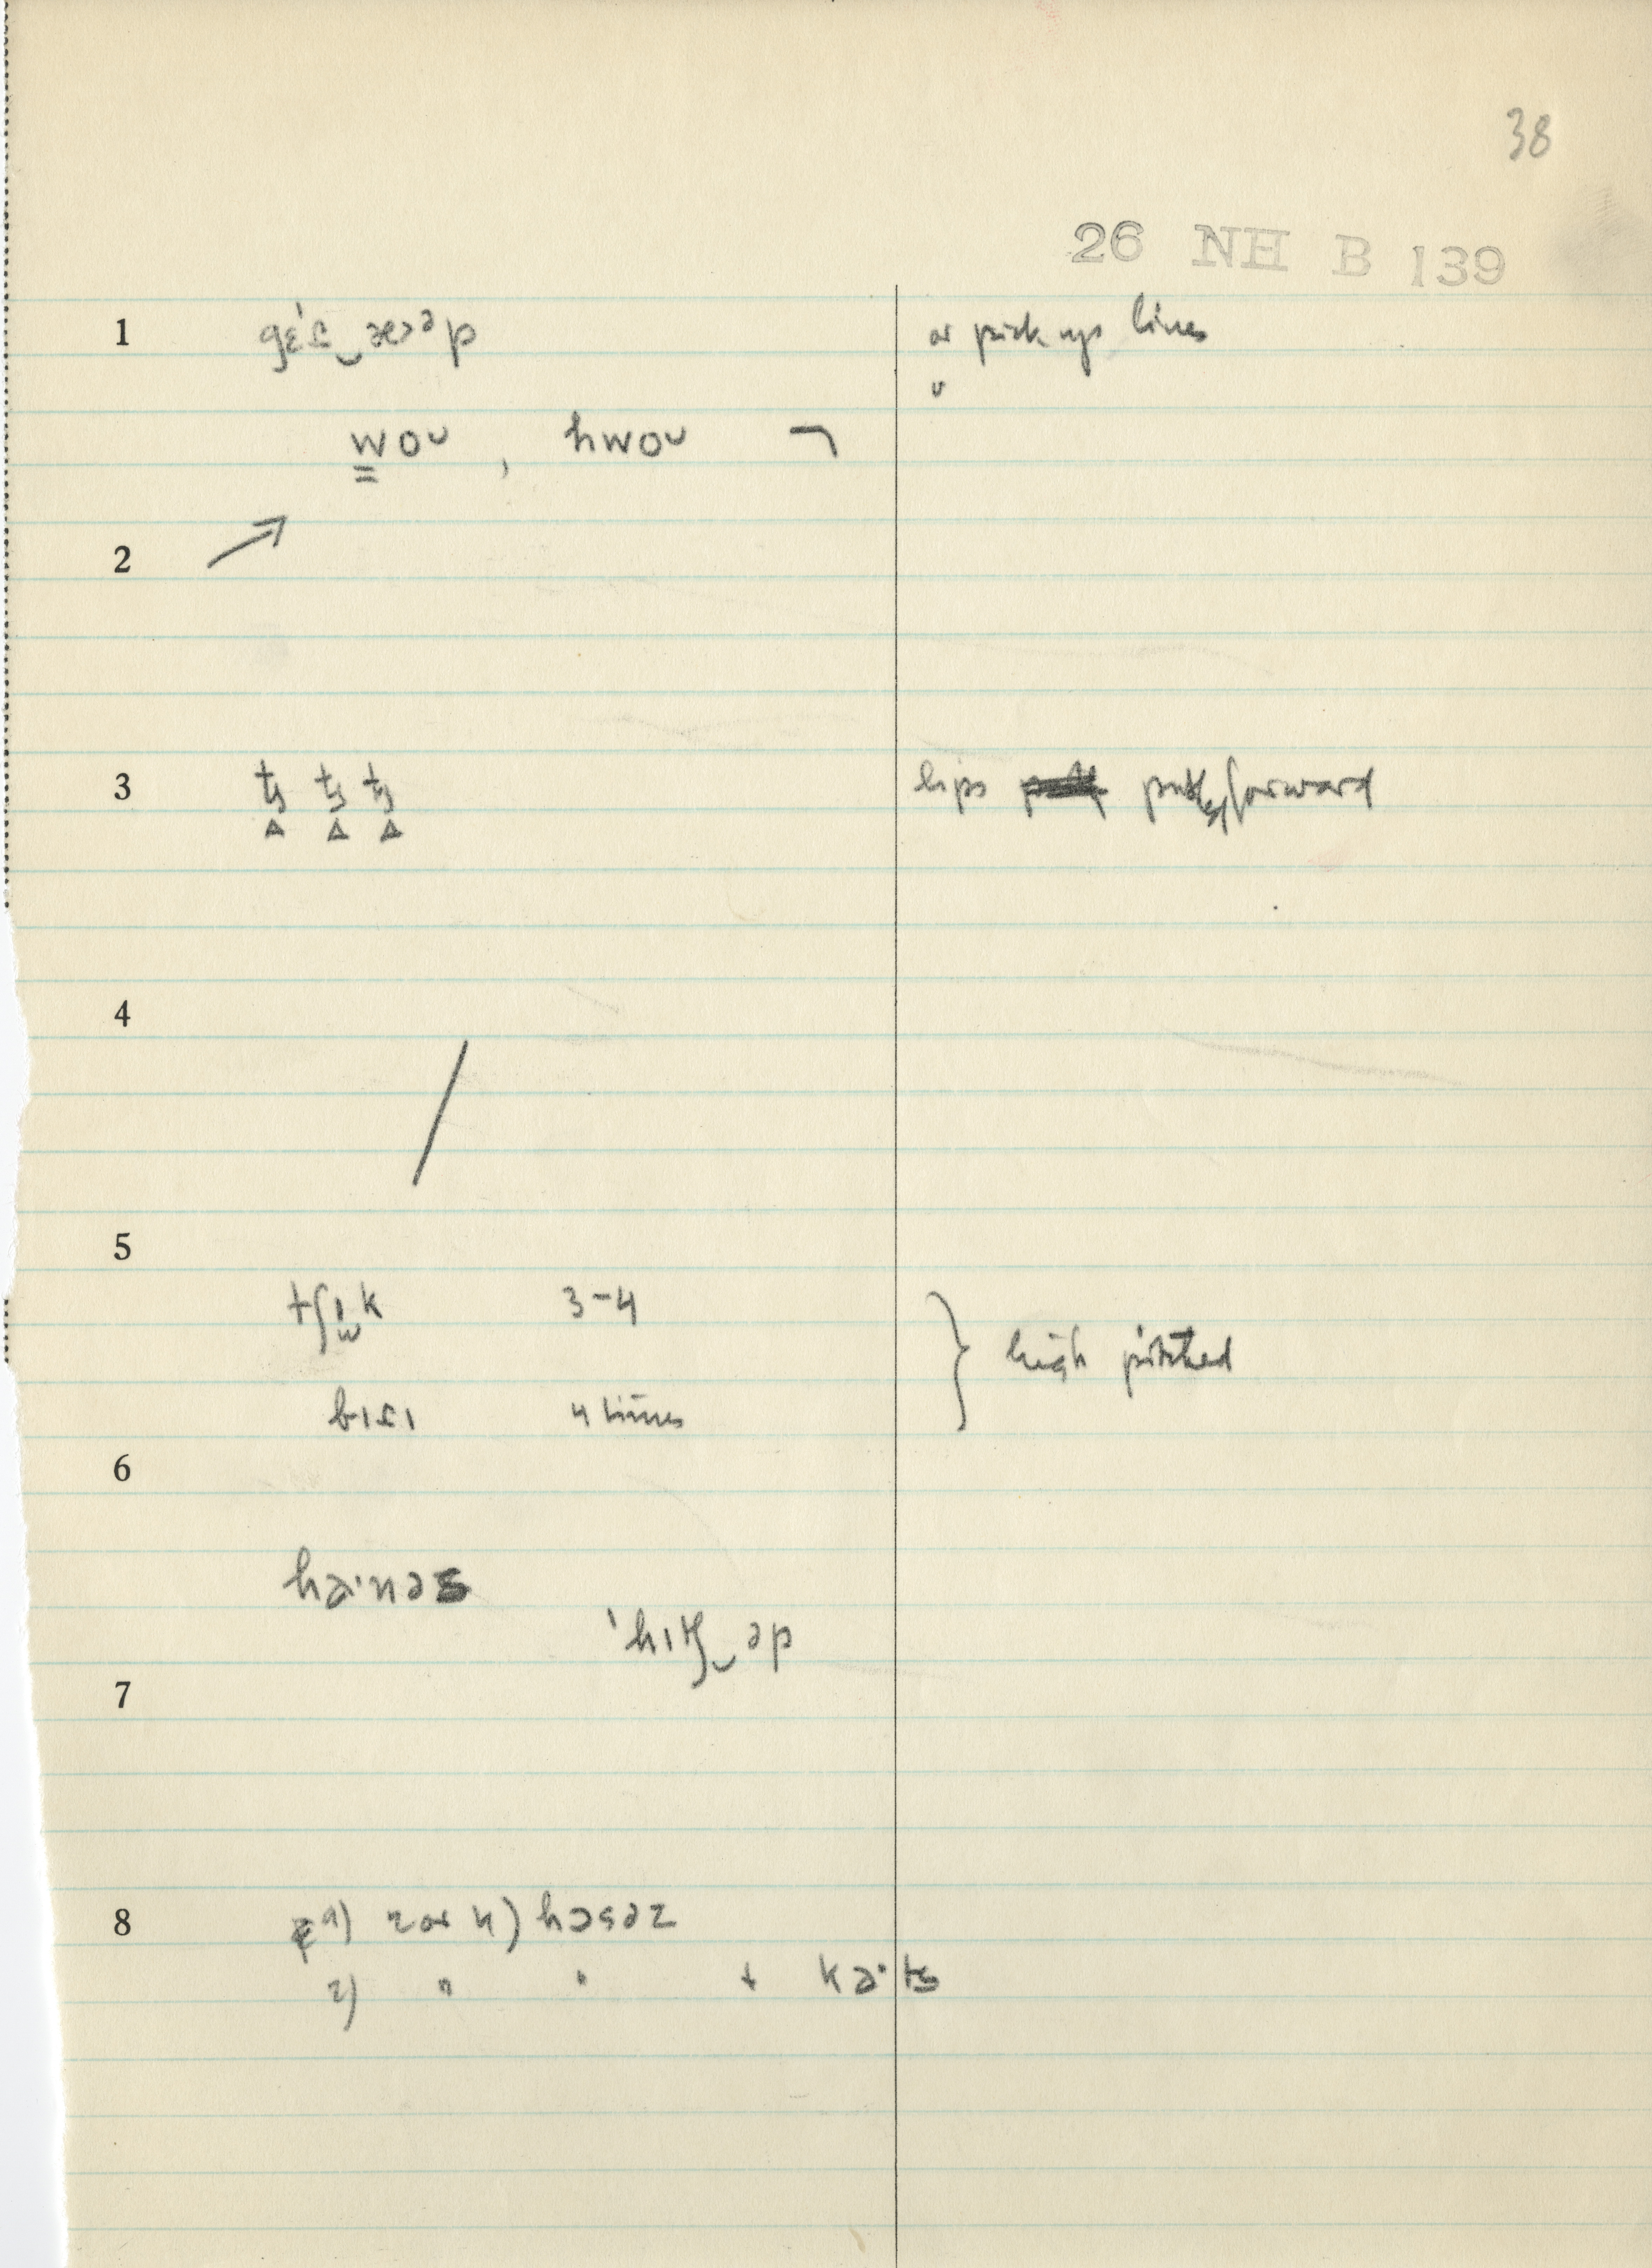 38
26 NH B 139
1 gɛ́ɾ‿æɔəp or pick up lines
w̳oᴜ , hwoᴜ ¬
2 ↗
3 lips forward
4 /
5
tʃɪk 3-4 } high pitched
bɪɾɪ 4 times
6
ha·nəs
ˈhɪtʃ‿əp
7
8 1) 2 or 4) həsəz
2) " " + ka·ts